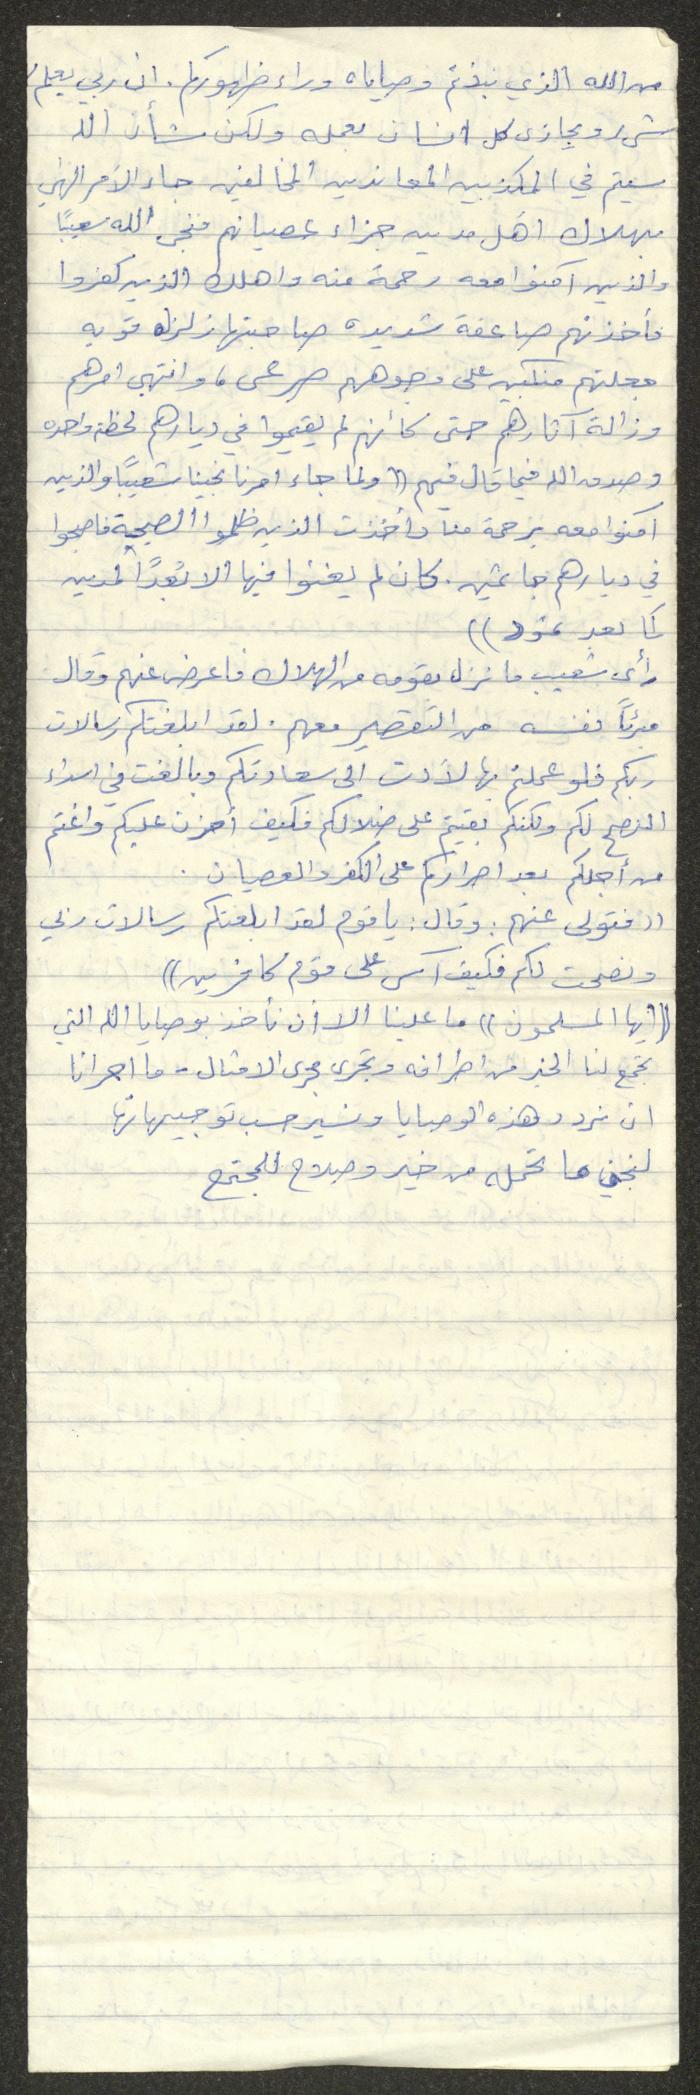 من الله الذي نبذتم وصاياه وراء ظهوركم. ان ربي يعلم
شيء ويجازى كل انسان بعمله ولكن شأن الله
سيتم في المكذبين المعاندين المخالفين جاء الأمر الهي
بهلاك اهل مدين جزاء عصيانهم فنجى الله شعيبًا
والذين آمنوا معه رحمة منه واهلك الذين كفروا
فأخذتهم صاعقة شديده صاحبتها زلزله قويه
جعلتهم منكبين على وجوههم صرعى، وانتهى امرهم
وزالة آثارهم حتى كأنهم لم يقيموا في ديارهم لحظة واحده
وصدق الله فيما قال فيهم ((ولما جاء امرنا نجينا شعيبًا والذين
آمنوا معه برحمة منا وأخذت الذين ظلموا الصيحة فاصبحوا
في ديارهم جاثمين. كان لم يغنوا فيها الا بُعدًا لمدين
كما بعدت ثمود))
رأى شعيب ما نزل بقومه من الهلاك فاعرض عنهم وقال
مبرئًا نفسه من التقصير معهم. لقد ابلغتكم رسالات
ربكم فلو عملتم بها لأدت الى سعادتكم وبالغت في اسداء
النصح لكم ولكنكم بقيتم على ضلالكم فكيف أحزن عليكم واغتم
من أجلكم بعد اصراركم على الكفر والعصيان.
((فتولى عنهم: وقال: يا قوم لقد ابلغتكم رسالات ربي
ونصحت لكم فكيف آسى على قوم كافرين))
((ايها المسلمون)) ما علينا الا أن نأخذ بوصايا الله التي
تجمع لنا الخير من اطرافه وتجرى مجرى الامثال - ما احرانا
ان نردد هذه الوصايا ونسير حسب توجيهاتها
لنجني ما تحمله من خير وصلاح للمجتمع